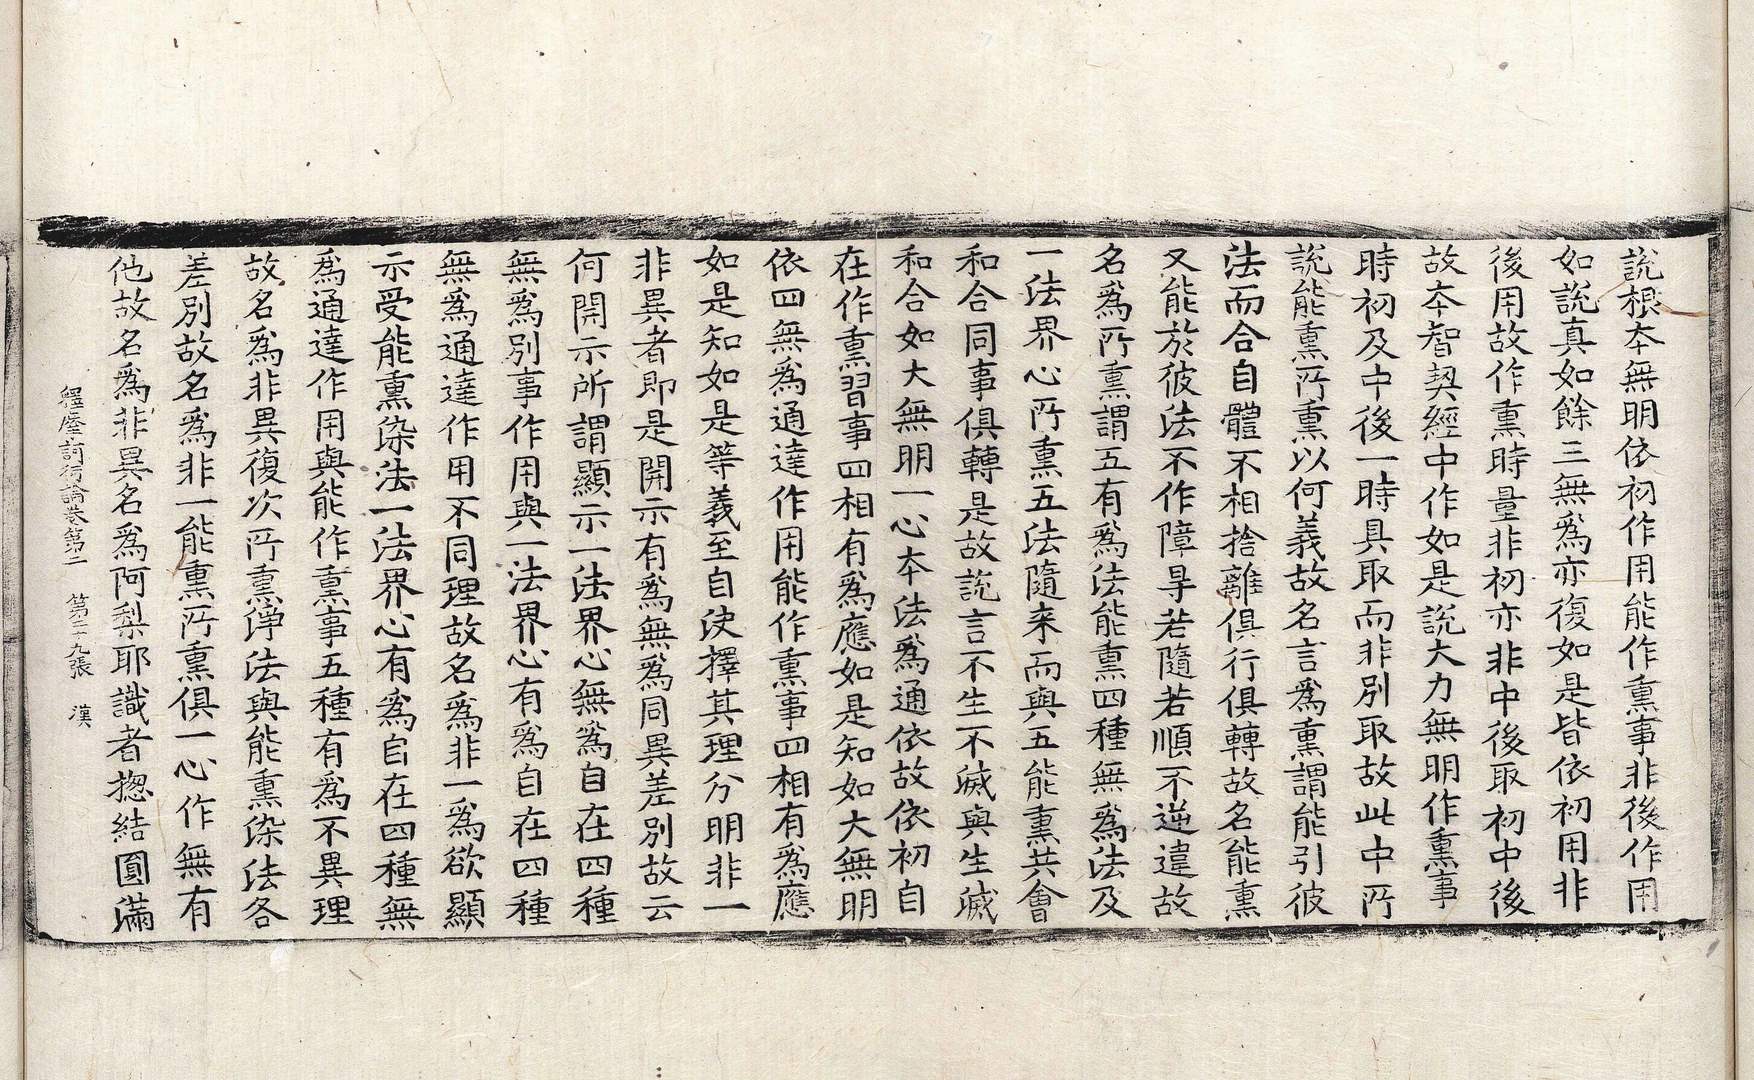 說根本無明依初作用能作熏事非後作用
如說真如餘三無爲亦復如是皆依初用非
後用故作熏時量非初亦非中後取初中後
故本智契經中作如是說大力無明作熏事
時初及中後一時具取而非別取故此中所
說能熏所熏以何義故名言爲熏謂能引彼
法而合自體不相捨離俱行俱轉故名能熏
又能於彼法不作障㝵若隨若順不逆違故
名爲所熏謂五有爲法能熏四種無爲法及
一法界心所熏五法隨来而與五能熏共會
和合同事俱轉是故說言不生不滅與生滅
和合如大無明一心本法爲通依故依初自
在作熏習事四相有爲應如是知如大無明
依四無爲通達作用能作熏事四相有爲應
如是知如是等義至自決擇其理分明非一
非異者即是開示有爲無爲同異差別故云
何開示所謂顯示一法界心無爲自在四種
無爲別事作用與一法界心有爲自在四種
無爲通達作用不同理故名爲非一爲欲顯
示受能熏染法一法界心有爲自在四種無
爲通達作用與能作熏事五種有爲不異理
故名爲非異復次所熏淨法與能熏染法各
差別故名爲非一能熏所熏俱一心作無有
他故名爲非異名爲阿梨耶識者揔結圓滿
釋摩訶衍論卷第二　第二十九張　漢